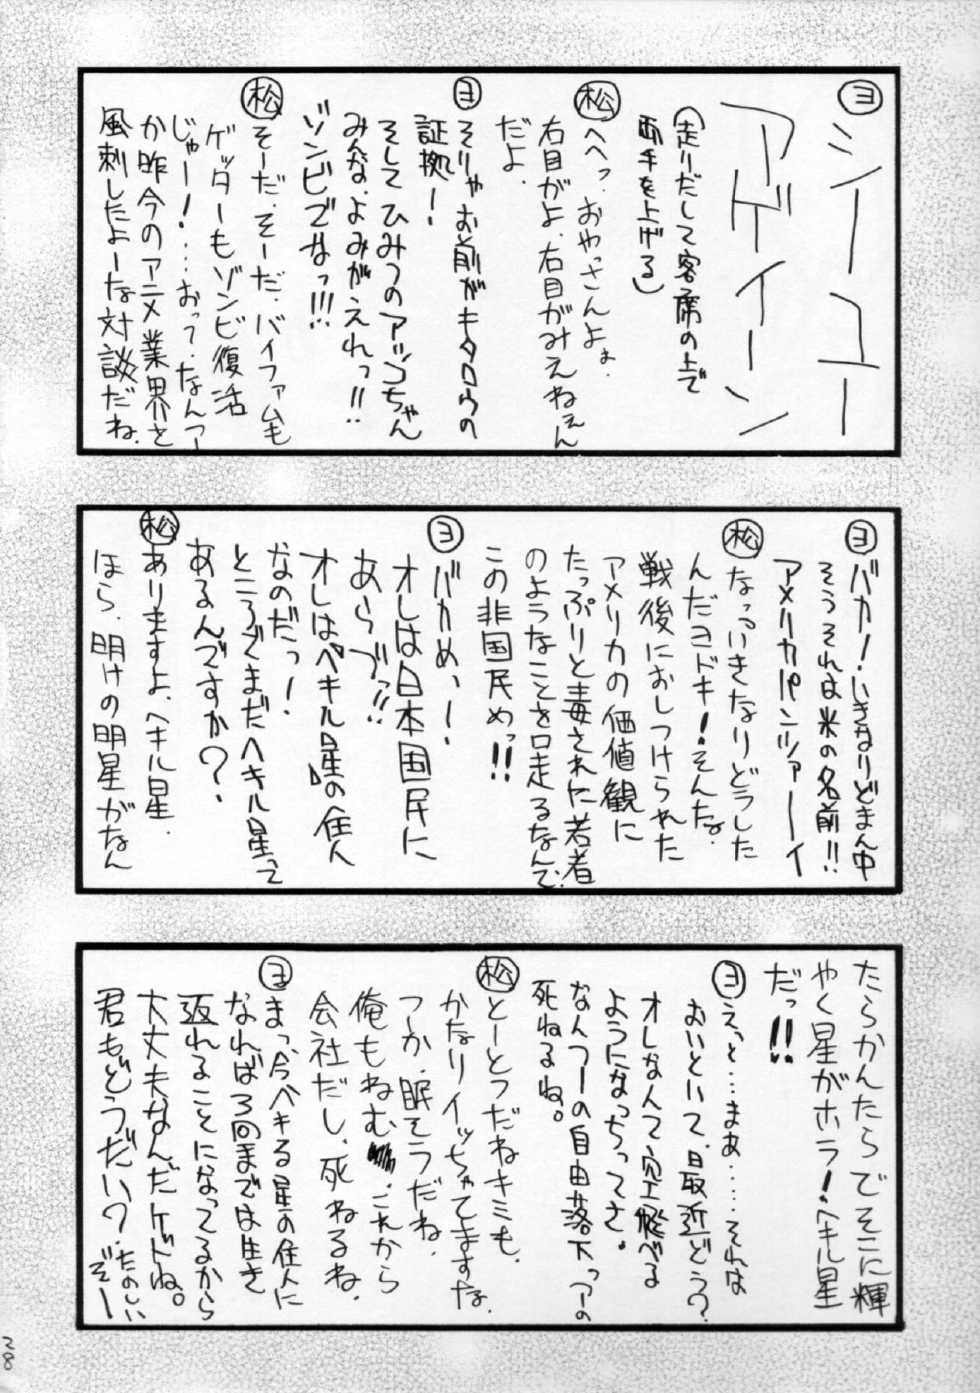 ヨ
シーユー
アゲイン
(走りだして客席の上で
両手を上げる)
松
へへっ、おやっさんよぉ、
右目がよ、右目がみえねえん
だよ、
ヨ
そりゃお前がキタロウの
証拠!
そしてひみつのアッコちゃん
みんな、よみがえれっ!!
ゾンビでなっ!!!
松
そーだ、そーだ、バイファムも
ゲッターもゾンビ復活
じゃー!…おって、なんつー
か昨今のアニメ業界を
風刺したよーな対談だね、
ヨ
バカ!いきなりどまん中
そうそれは米の名前!!
アメリカパンツァーーイ
松
なっ、いきなりどうした
んだヨドキ!そんな、
戦後におしつけられた
アメリカの価値観に
たっぷりと毒された若者
のようなことを口走るなんて、
この非国民めっ!!
ヨ
バカめ、!
オレは日本国民に
あらづっ!!
オレはペキル星の住人
なのだっ!
ところでまだヘキル星って
あるんですか?
松
ありますよ、ヘキル星、
ほら、明けの明星がなん
たらかんたらでそこに輝
やく星がホラ!ヘキル星
だっ!!
ヨ
えっと…まあ……それは
おいといて、最近どう?
オレなんて空飛べる
ようになっちってさ。
なんつーの自由落下っつの
死ねるね。
松
とーとつだねキミも、
かなりイッちゃてますな、
つーか、眠そうだね、
俺もねむ、これから
会社だし、死ねるね、
ヨ
まっ、今ペキる星の住人に
なれば3回までは生き
返れることになってるから
大丈夫なんだケドね。
君もどうだい?たのしい
ぞー
28